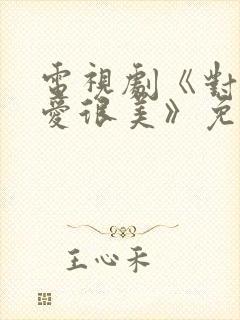 電視劇《對
愛很美》免
王心禾